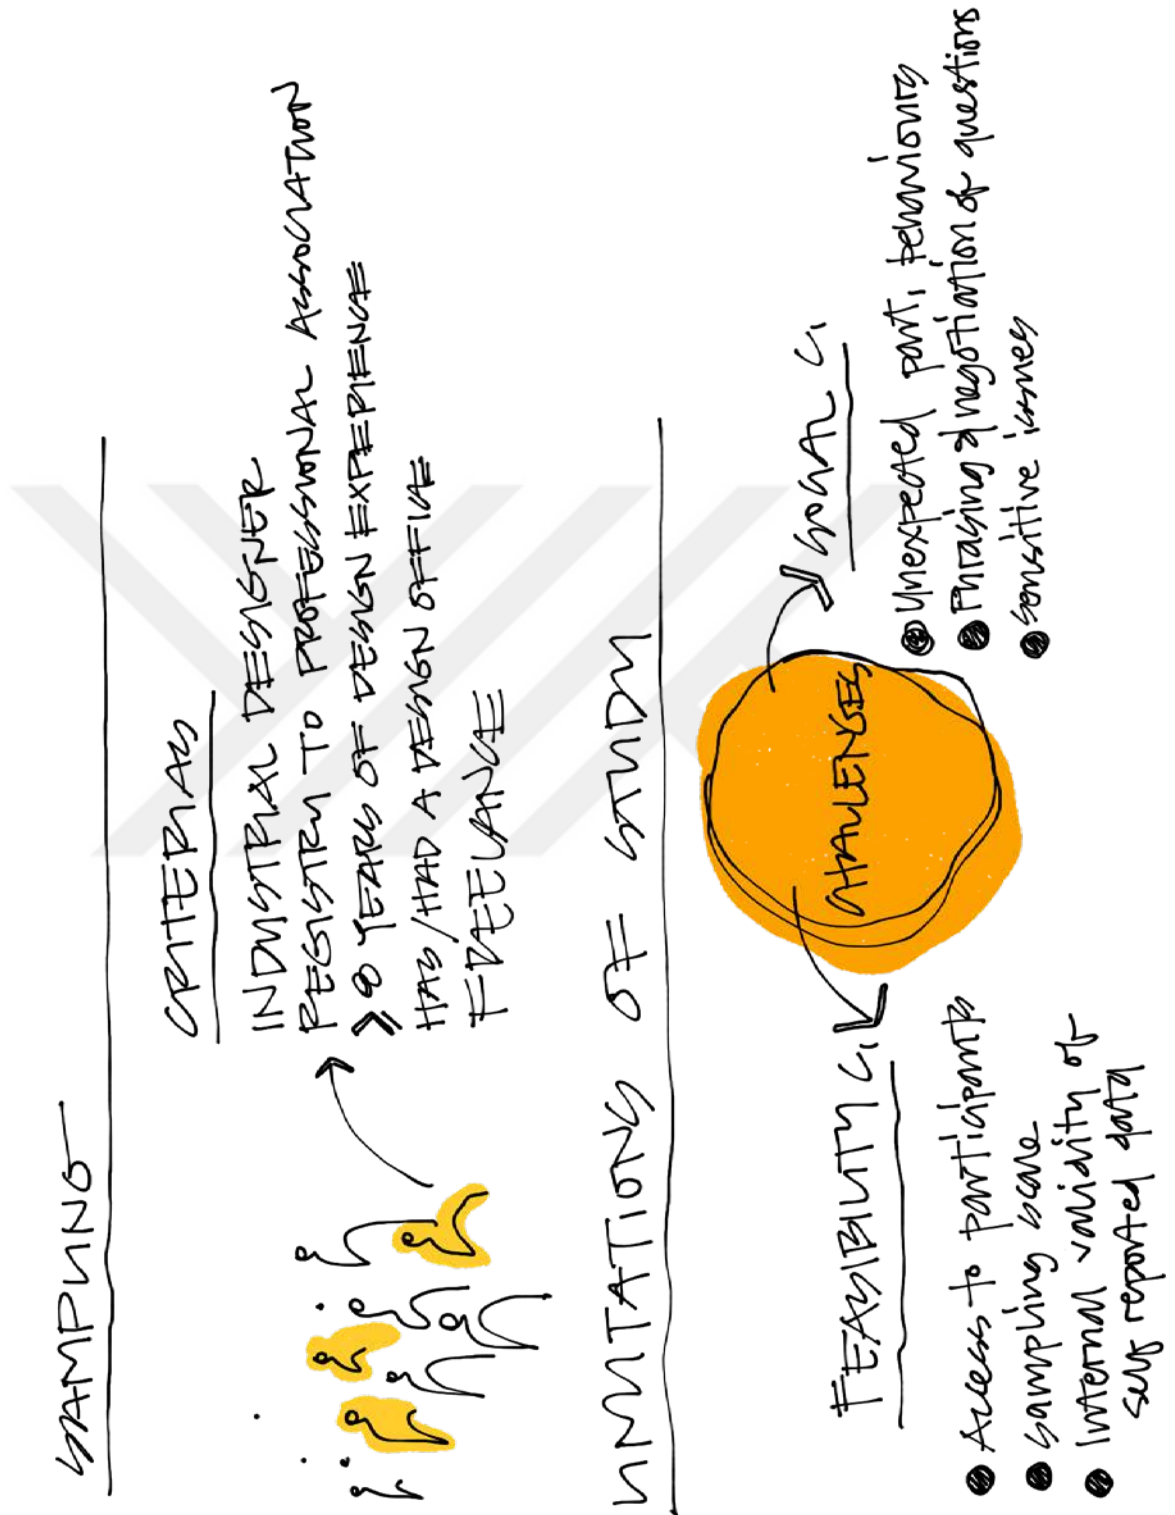 SAMPLING
CRITERIAS
INDUSTRIAL DESIGNER
REGISTRY TO PROFESSIONAL ASSOCIATION
≥ 8 YEARS OF DESIGN EXPERIENCE
HAS / HAD A DESIGN OFFICE
FREELANCE
LIMITATIONS OF STUDY
CHALLENGES
FEASIBILITY C.
Access to participants
Sampling scale
Internal validity of
self reported data
SOCIAL C.
Unexpected part. behaviours
Phrasing & negotiation of questions
Sensitive issues